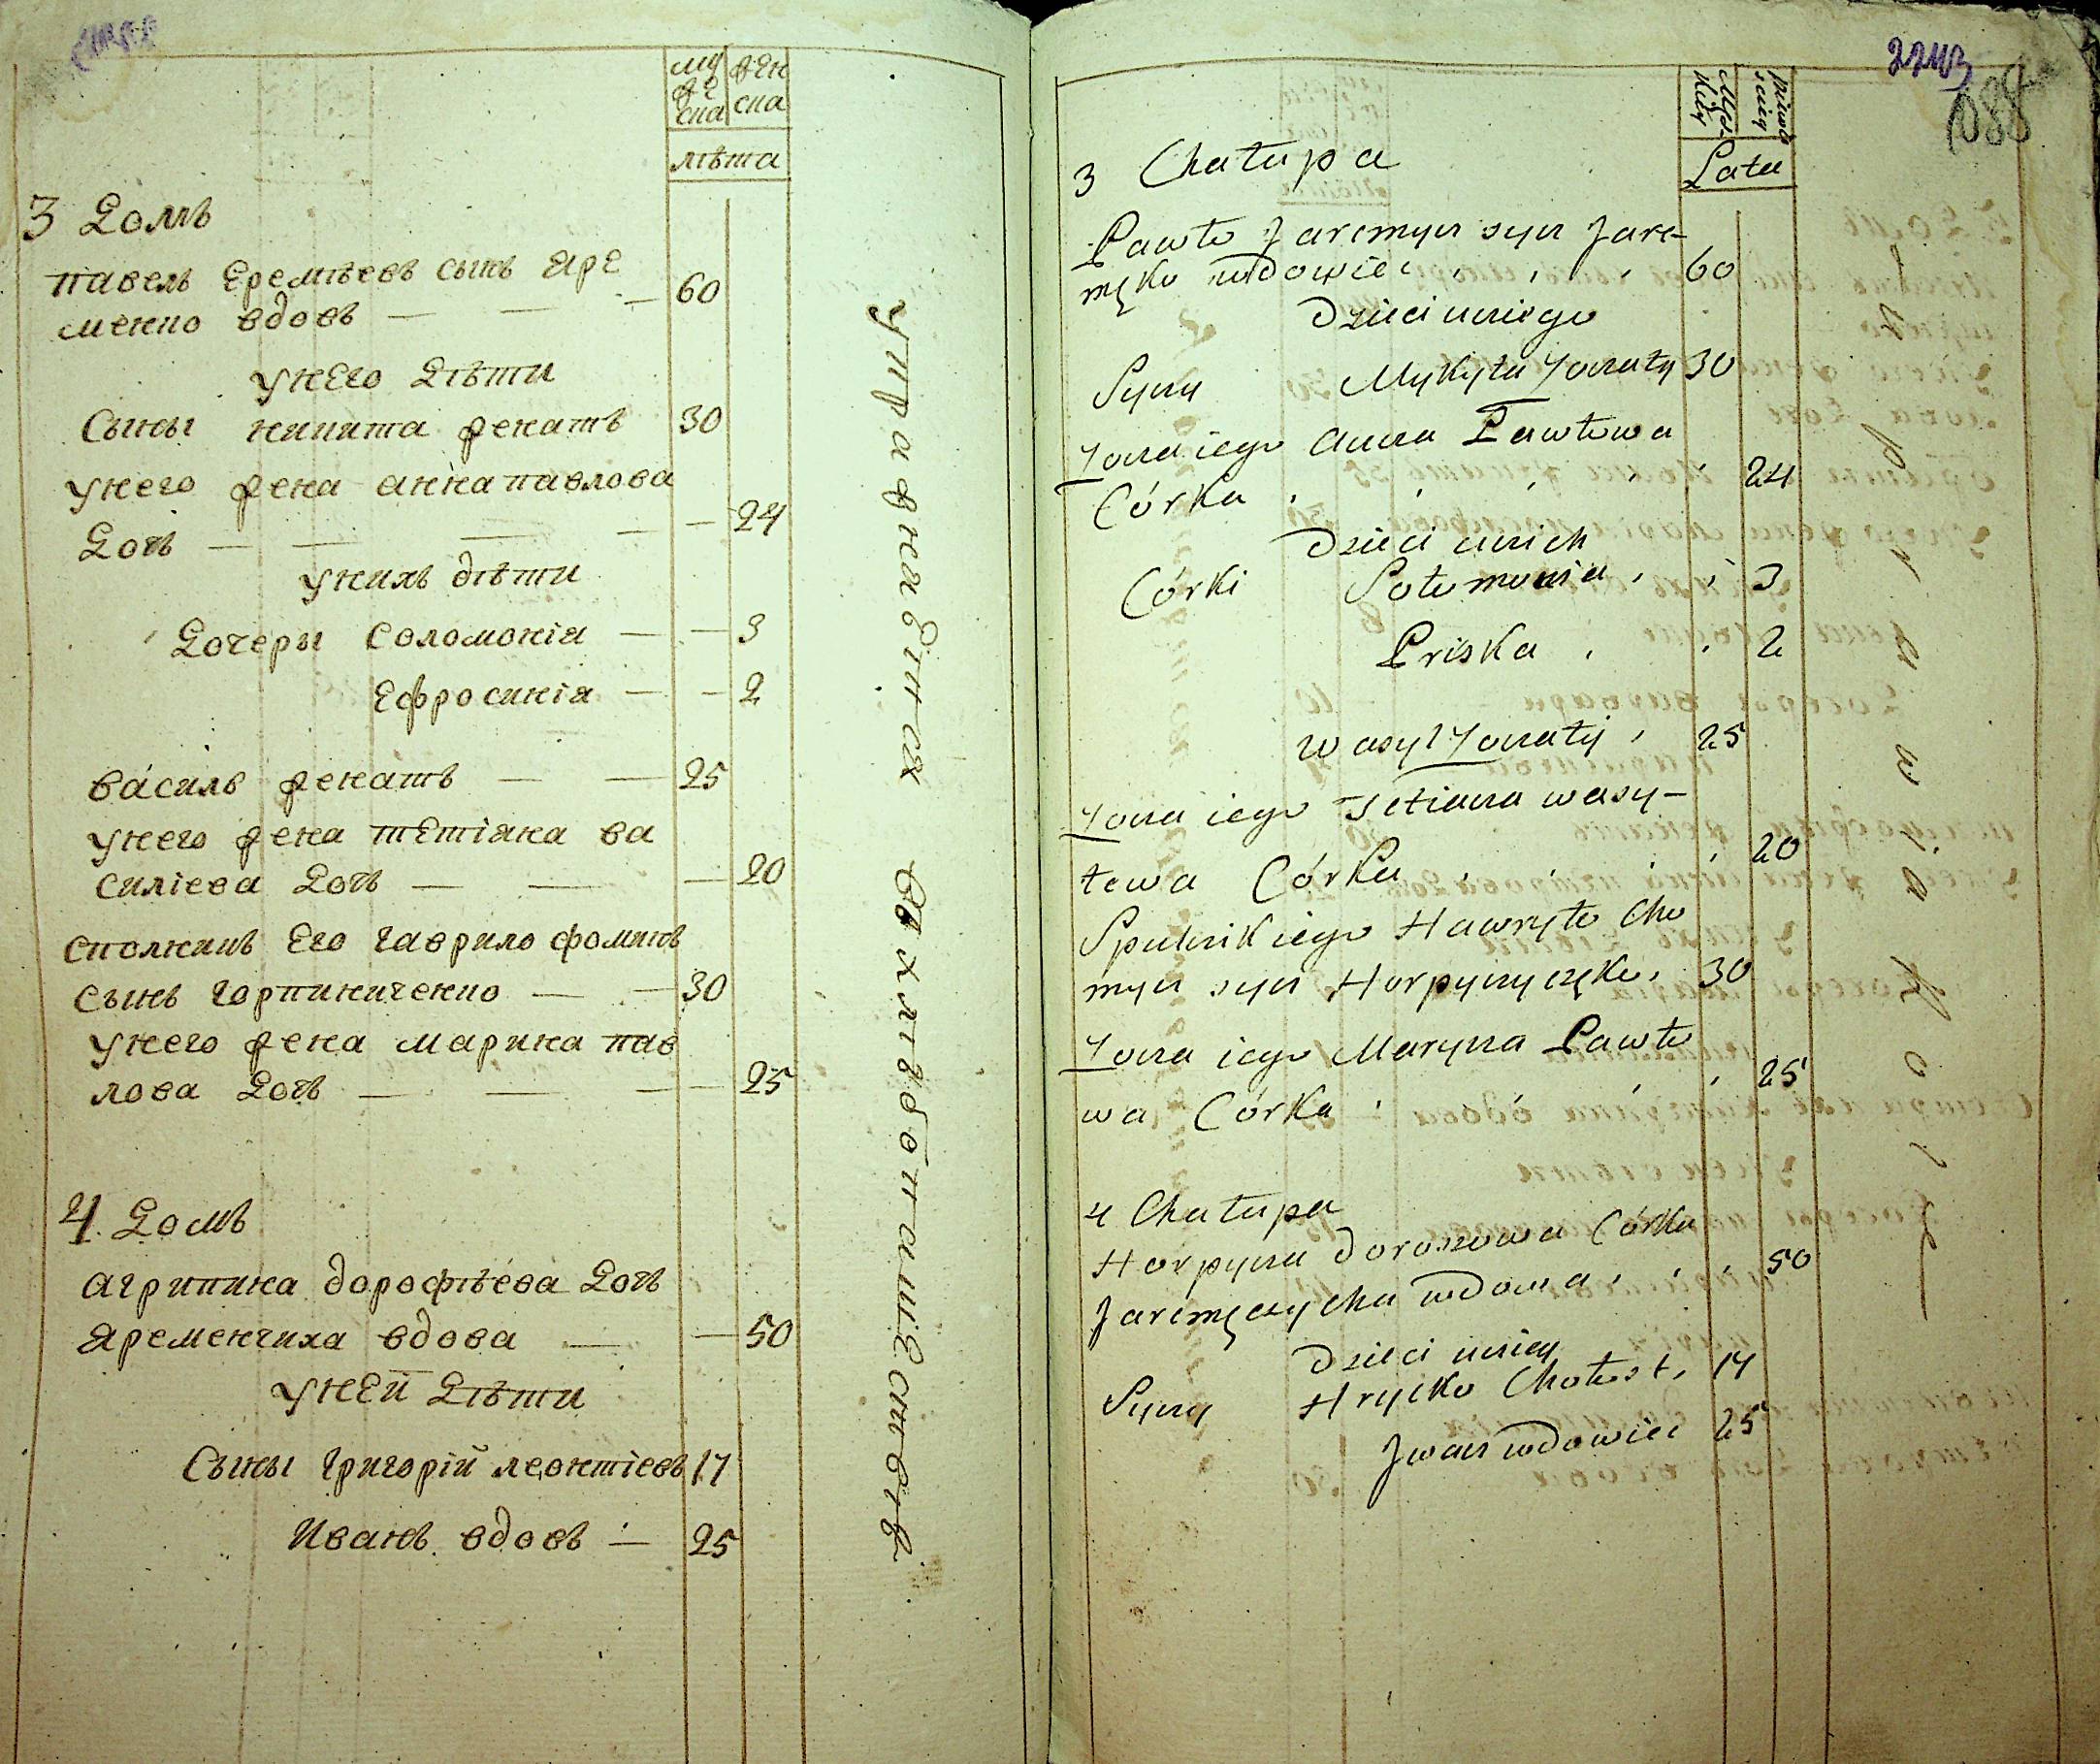 муже ска
женска
лѣта
3 Домъ
павелъ Еремѣевъ сынъ яре
менко вдовъ — — — 60
у него Дѣти
Сыны никита женатъ 30
у него жена анна павлова
Дочь — — — — — 24
у нихъ дѣти
Дочеры Соломонія — — 3
Ефросинія — — 2
василь женатъ — — 25
у него жена тетіяна ва
силіева Дочь — — — 20
сполникъ Его Гаврило фоминъ
сынъ горпиниченко — — 30
у него жена марина пав
лова Дочь — — — 25
4 Домъ
агрипина дорофѣева Дочь
яременчиха вдова — — 50
у неи Дѣти
Сыны григорій леонтіевъ 17
Иванъ вдовъ — 25
упражняЕтся въ хлѣбопашЕствѣ
2243
1088
Męzka
Lata
3 Chałupa
Pawło Jaremyn syn Jare-
męko wdowiec 60
Dzieci u niego
Syny Mykyta Żonaty 30
Żona iego Anna Pawłowa
Córka 24
Dzieci u nich
Córki Sołomonia 3
Priska 2
Wasyl Żonaty 25
Żona iego Tetiana wasy-
lewa Córka 20
Spulnik iego Hawryło Cho
myn syn Horpynyczęko 30
Żona iego Maryna Pawło
wa Córka 25
4 Chałupa
Horpyna Doroszowa Córka
Jaremęczycha wdowa 50
Dzieci u niey
Syny Hrycko Chołost 17
Jwan wdowiec 25